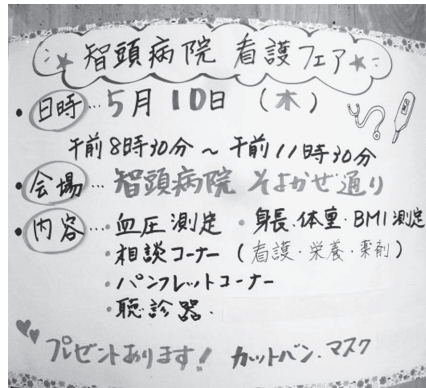 智頭病院 看護フェア
・日時…5月10日(木)
午前8時30分～午前11時30分
・会場…智頭病院 そよかぜ通り
・内容…・血圧測定 ・身長・体重・BMI測定
・相談コーナー(看護・栄養・薬剤)
・パンフレットコーナー
・聴診器・
プレゼントあります! カットバン・マスク